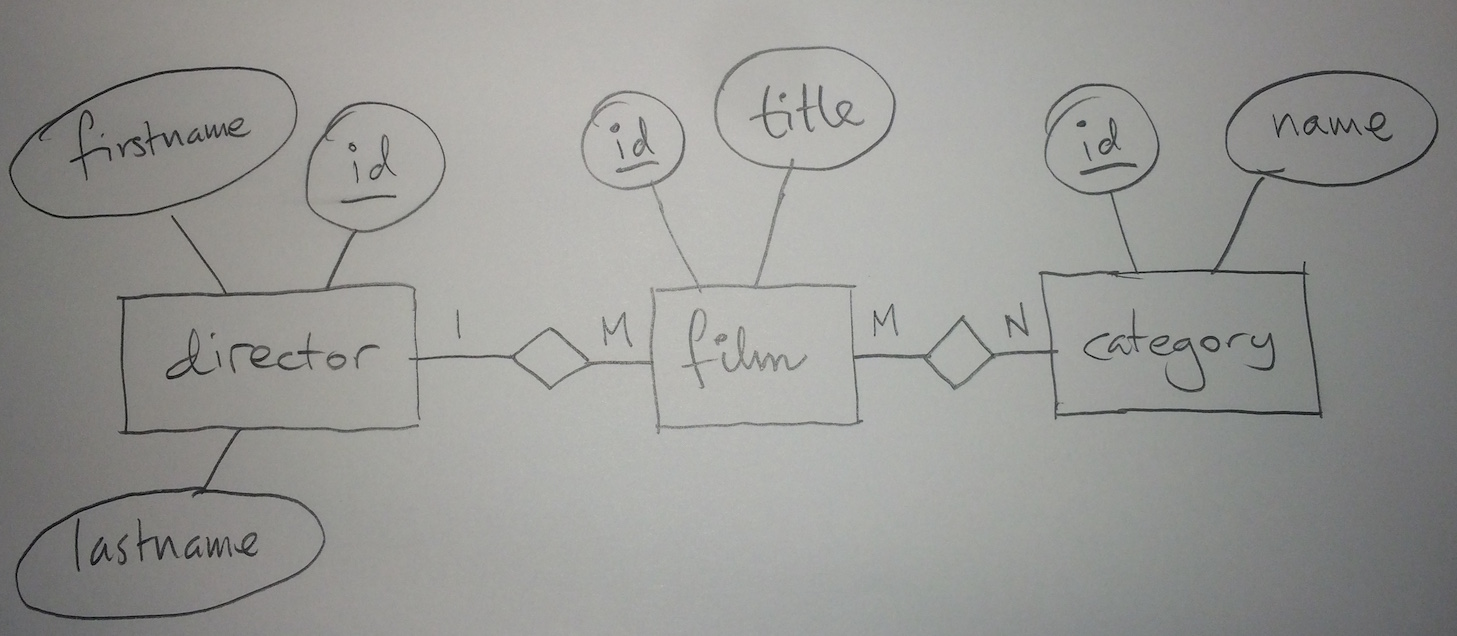 firstname
id
id
title
id
name
director
1
M
film
M
N
category
lastname